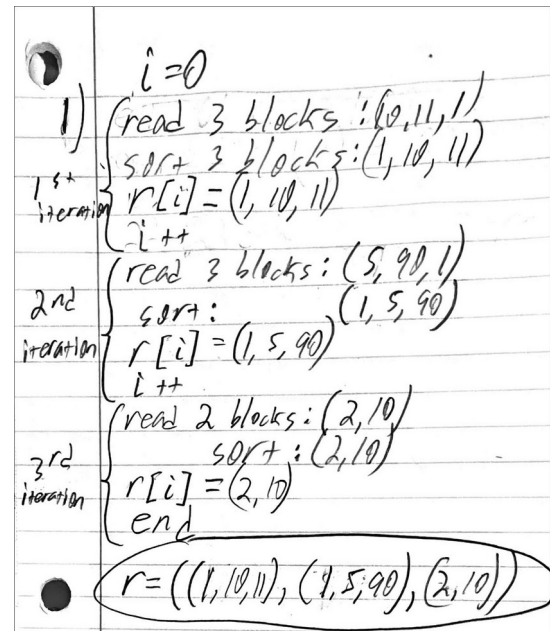 i=0
1)
1st iteration
read 3 blocks: (10,11,1)
sort 3 blocks: (1, 10, 11)
r[i] = (1, 10, 11)
i++
2nd iteration
read 3 blocks: (5, 90, 1)
sort: (1, 5, 90)
r[i] = (1, 5, 90)
i++
3rd iteration
read 2 blocks: (2, 10)
sort: (2, 10)
r[i] = (2, 10)
end
r = ((1, 10, 11), (1, 5, 90), (2, 10))